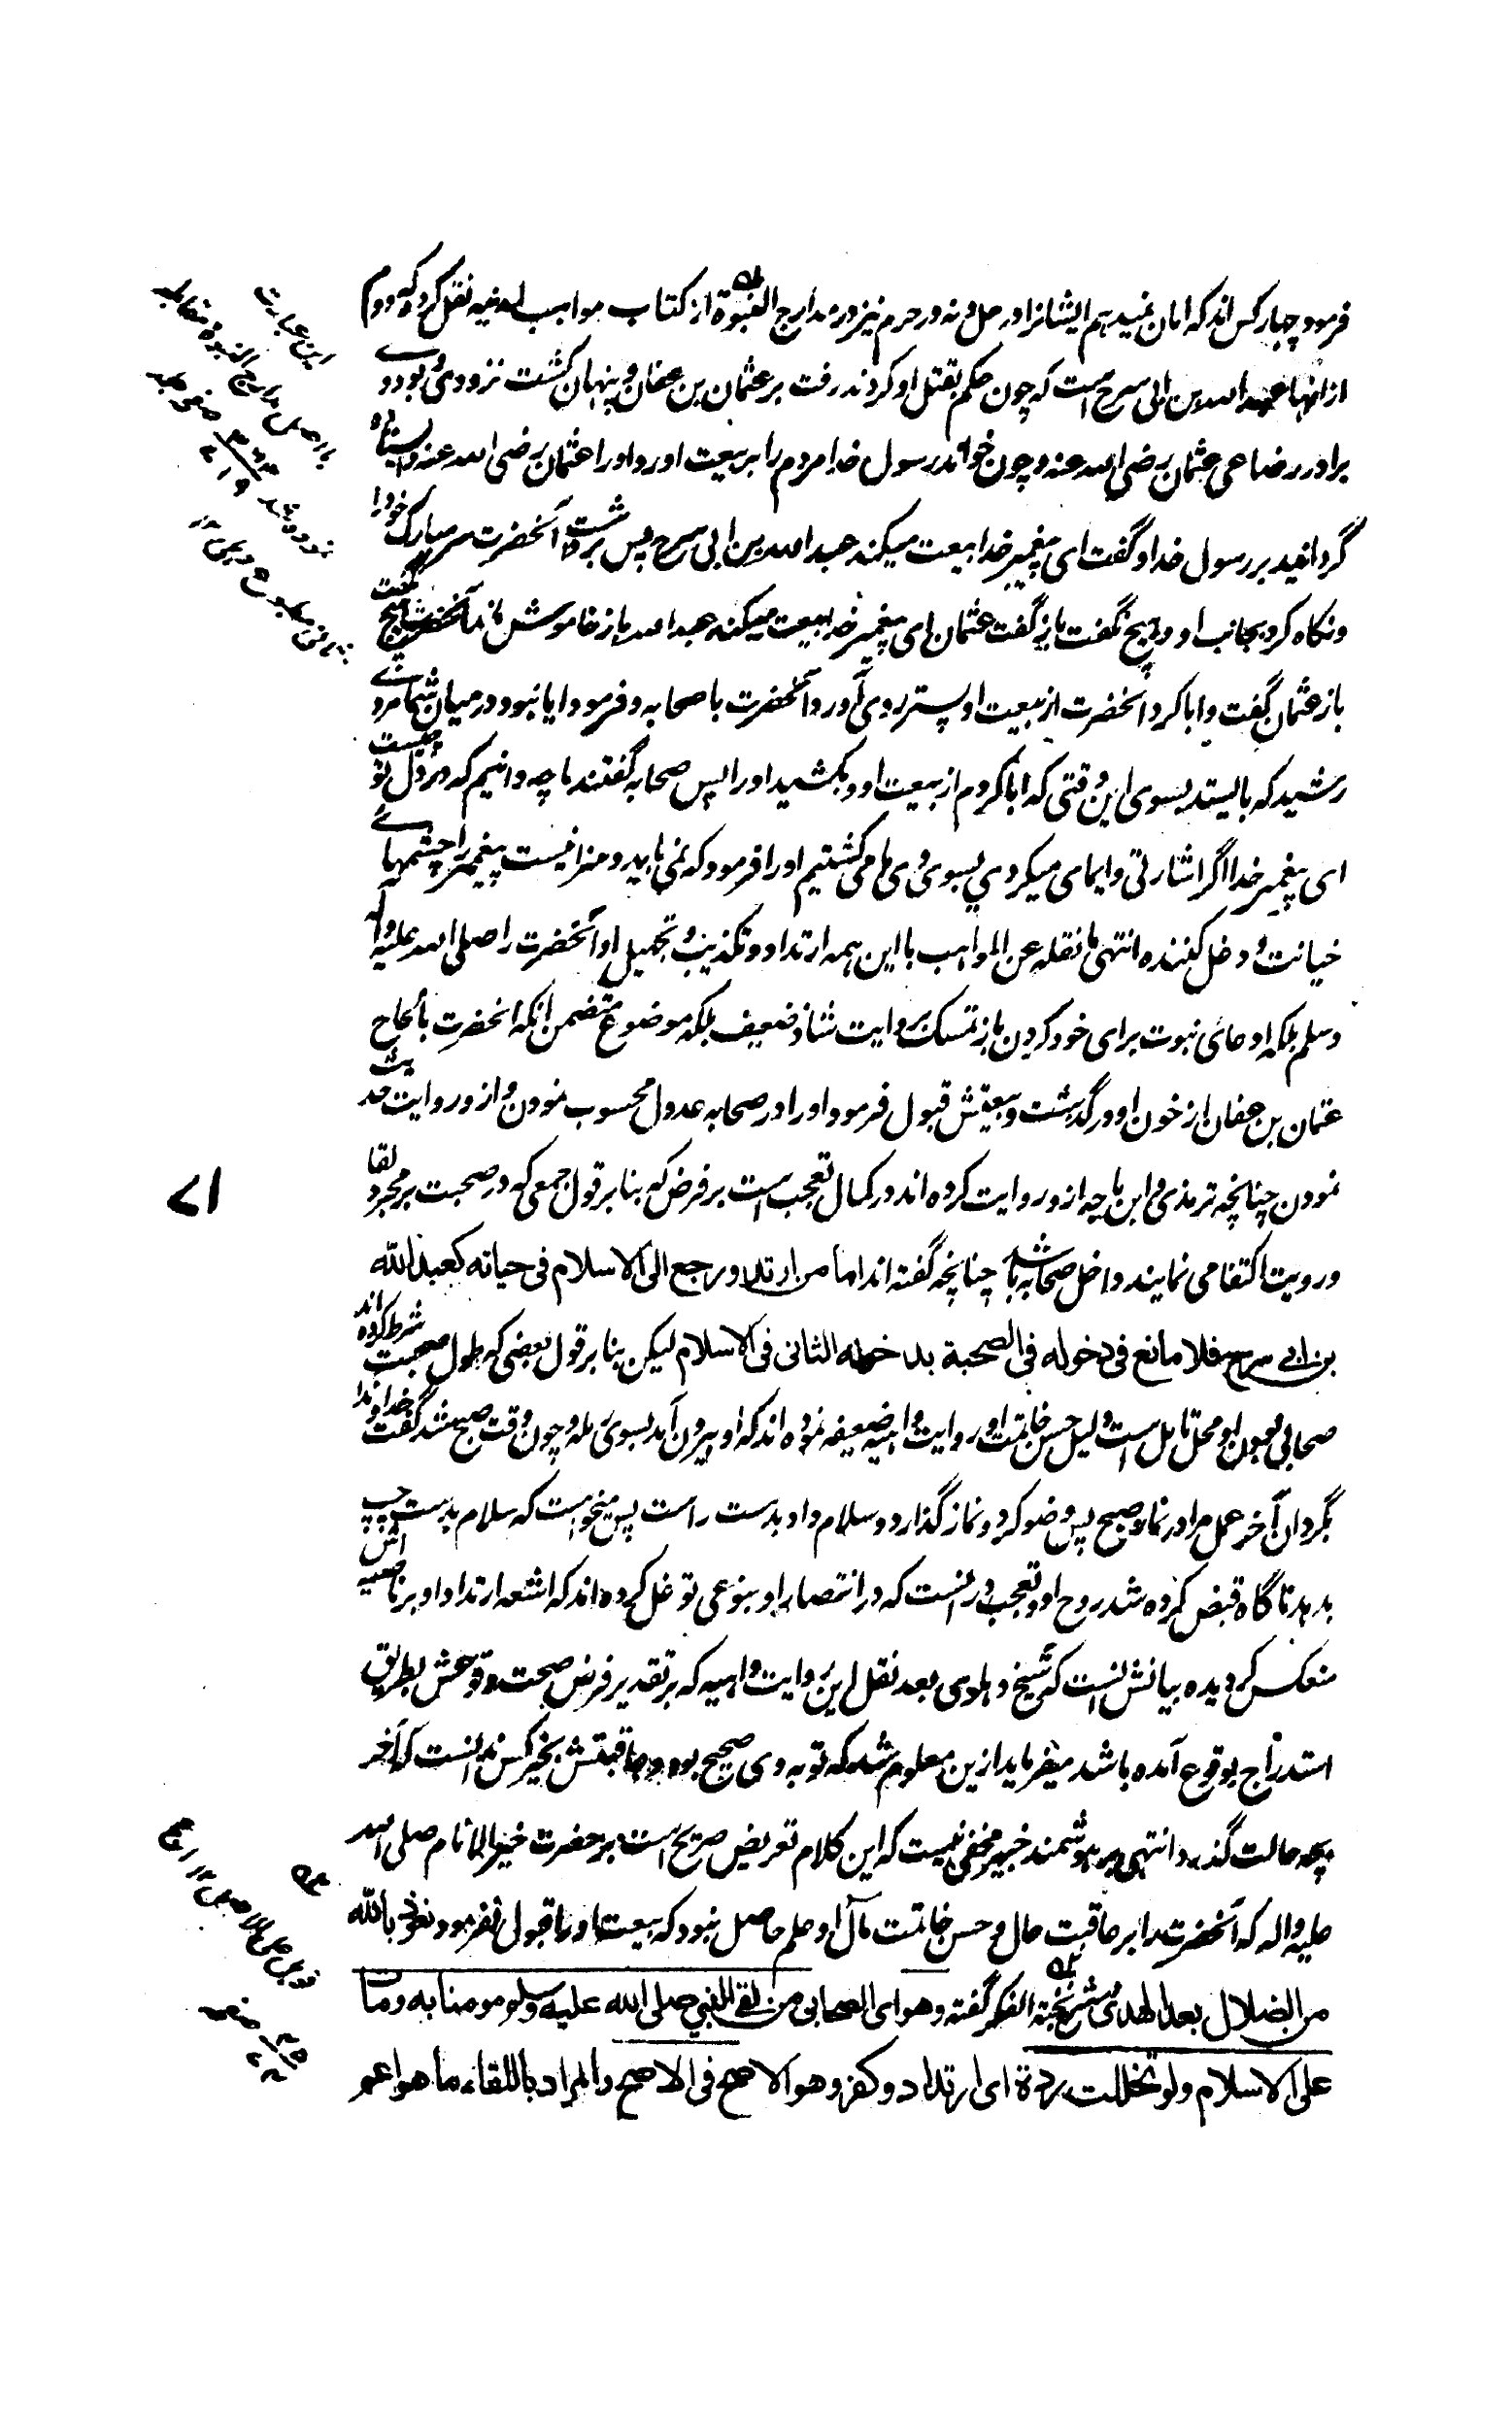 فرمود چهار کس اند که امان نمیدهم ایشانرا در حل و نه در حرم نیز در مدارج النبوة از کتاب مواهب لدنیه نقل کرده که دوم
از انها عبد الله بن ابی سرح است که چون حکم بقتل او کردند رفت بر عثمان بن عفان و پنهان گشت نزد وی و بود وے
برادر رضاعی عثمان رضی الله عنه و چون خواند رسول خدا مردم را بر بیعت اورد او را عثمان رضی الله عنه و ایستاده
گردانید بر رسول خدا و گفت ای پیغمبر خدا بیعت میکند عبد الله بن ابی سرح پس برداشت آنحضرت سر مبارک خود را
و نگاه کرد بجانب او و هیچ نگفت باز گفت عثمان ای پیغمبر خدا بیعت میکند عبد الله باز خاموش ماند آنحضرت هیچ نگفت
باز عثمان گفت و ابا کرد آنحضرت از بیعت او پستر روی آورد آنحضرت با صحابه و فرمود ایا نبود در میان شما مردے
رشید که بایستد بسوی این وقتی که ابا کردم از بیعت او و بکشید او را پس صحابه گفتند ما چه دانیم که در دل تو چیست
ای پیغمبر خدا اگر اشارتی و ایمای میکردی بسوی وی ما می کشتیم او را فرمود که نمی باید و سزا نیست پیغمبر را چشمهاے
خیانت و دغل کننده انتهی ما نقله عن المواهب با این همه ارتداد و تکذیب و تجهیل او آنحضرت را صلی الله علیه و آله
وسلم بلکه ادعای نبوت برای خود کردن باز تمسک بروایت شاذ ضعیف بلکه موضوع متضمن انکه انحضرت بالحاح
عثمان بن عفان از خون او در گذشت و بیعتش قبول فرمود او را در صحابه عدول محسوب نمودن و از و روایت حدیث
نمودن چنانچه ترمذی و ابن ماجه از و روایت کرده اند در کمال تعجب است بر فرض که بنا بر قول جمعی که در صحبت بر مجرد لقا
و رویت اکتفا می نمایند داخل صحابه باشد چنانچه گفته اند اما من ارتد و رجع الی الاسلام فی حیاته کعبد الله
بن ابی سرح فلا مانع فی دخوله فی الصحبة بدخوله الثانی فی الاسلام لیکن بنا بر قول بعضی که طول صحبت شرط کرده اند
صحابی بودن او محل تامل است و دلیل حسن خاتمت او روایت واهیه ضعیفه نموده اند که او بیرون آمد بسوی رمله و چون وقت صبح شد گفت خداوندا
بگردان آخر عمل مرا در نماز صبح پس وضو کرد و نماز گذارد و سلام داد بدست راست پس میخواست که سلام بدست چپ
بدهد ناگاه قبض کرده شد روح او و تعجب در اینست که در انتصار او بنوعی توغل کرده اند که اشعه ارتداد او بر ناصیه اش
منعکس گردیده بیانش اینست که شیخ دهلوی بعد نقل این روایت واهیه که بر تقدیر فرض صحت وقوعش بطریق
استدراج بوقوع آمده باشد میفرماید ازین معلوم شد که توبه وی صحیح بود و عاقبتش بخیر کس ندانست که آخر
بچه حالت گذرد انتهی بر هوشمند خبیر مخفی نیست که این کلام تعریض صریح است بر حضرت خیر الانام صلی الله
علیه و اله که آنحضرت را بر عاقبت حال و حسن خاتمت مآل او علم حاصل نبود که بیعت او را قبول نفرمود نعوذ بالله
من الضلال بعد الهدی در شرح نخبة الفکر گفته و هو ای الصحابی من لقی النبی صلی الله علیه وسلم مومنا به و مات
علی الاسلام ولو تخللت ردة ای ارتداد و کفر و هو الاصح فی الاصح و المراد باللقاء ما هو اعم
این عبارت
۷۱